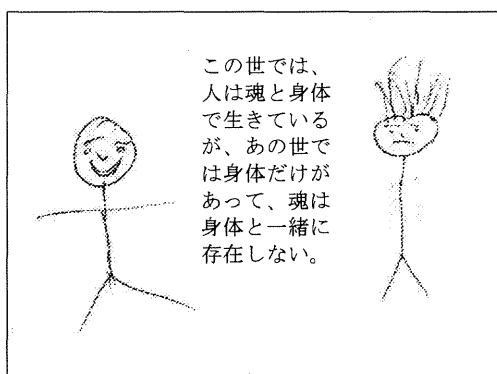 この世では、
人は魂と身体
で生きている
が、あの世で
は身体だけが
あって、魂は
身体と一緒に
存在しない。